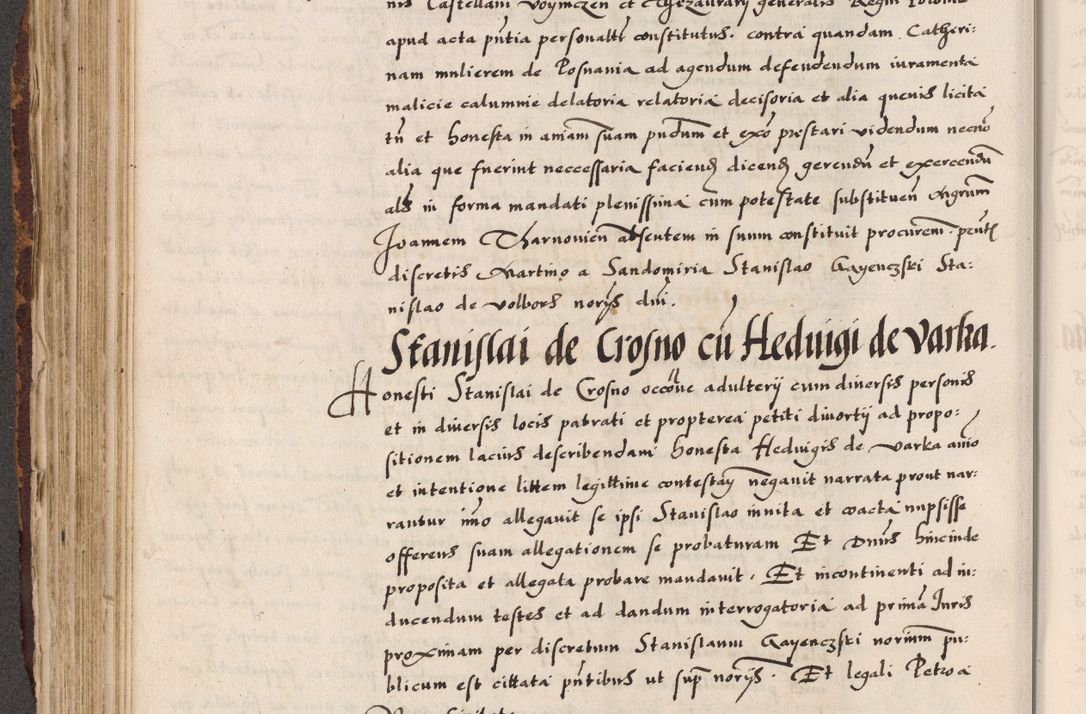 nis Castellani Voyniczen et Thezaurarii generalis Regni Polonie
apud acta pñtia personaltr constitutus. contra quandam Catheri:
nam mulierem de Posnania ad agendum defendendum iuramenta
malicie calumnie delatoria relatoria decisoria et alia quevis licita
tñ et honesta in aniam suam pñdum et exõ prestari videndum necnõ
alia que fuerint neccessaria faciend dicend gerendũ et exercendũ
als in forma mandati plenissima cum potestate substituen Mgrum
Joannem Tharnovien absentem in suum constituit procurem. pñtibs
discretis Martino a Sandomiria Stanislao Gayenczski Sta:
nislao de Volbors norijs dnĩ.
Stanislai de Crosno cũ Heduigi de Varka.
Honesti Stanislai de Crosno occõne adulterij cum diversis personis
et in diversis locis patrati et propterea petiti divortij ad propo:
sitionem lacius describendam honesta Heduigis de Varka aĩo
et intentione littem legittime contestañ negavit narrata prout nar:
rantur imo allegavit se ipsi Stanislao invita et coacta nupsisse
offerens suam allegationem se probaturam Et Dnũs hincinde
proposita et allegata probare mandavit. Et incontinenti ad in:
ducendum testes et ad dandum interrogatoria ad prima Juris
proximam per discretum Stanislaum Gayenczski norium pu:
blicum est cittata pñtibus ut sup norijs. Et legali Petro a